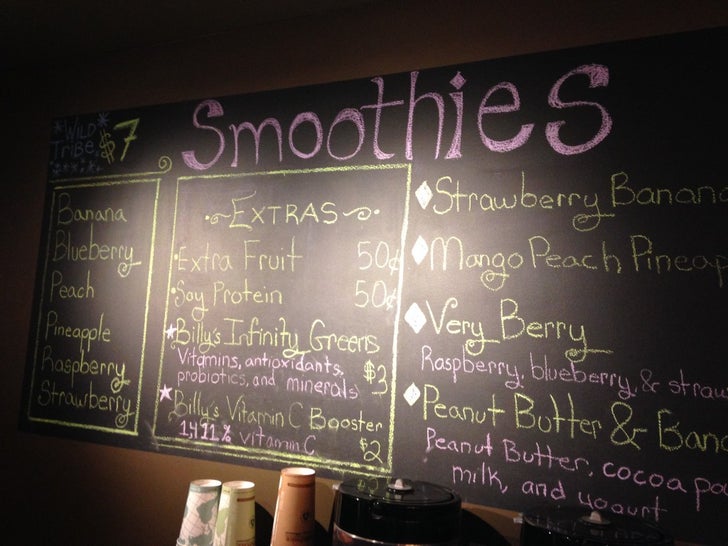 *WILD*
TriBe $7
Smoothies
Banana
Blueberry
Peach
Pineapple
Raspberry
Strawberry
EXTRAS
Extra Fruit 50¢
Soy Protein 50¢
Billy's Infinity Greens
Vitamins, antioxidants,
probiotics, and minerals $3
Billy's Vitamin C Booster
1,411% vitamin C $2
Strawberry Banana
Mango Peach Pineap
Very Berry
Raspberry, blueberry, & straw
Peanut Butter & Bana
Peanut Butter, cocoa po
milk, and yogurt